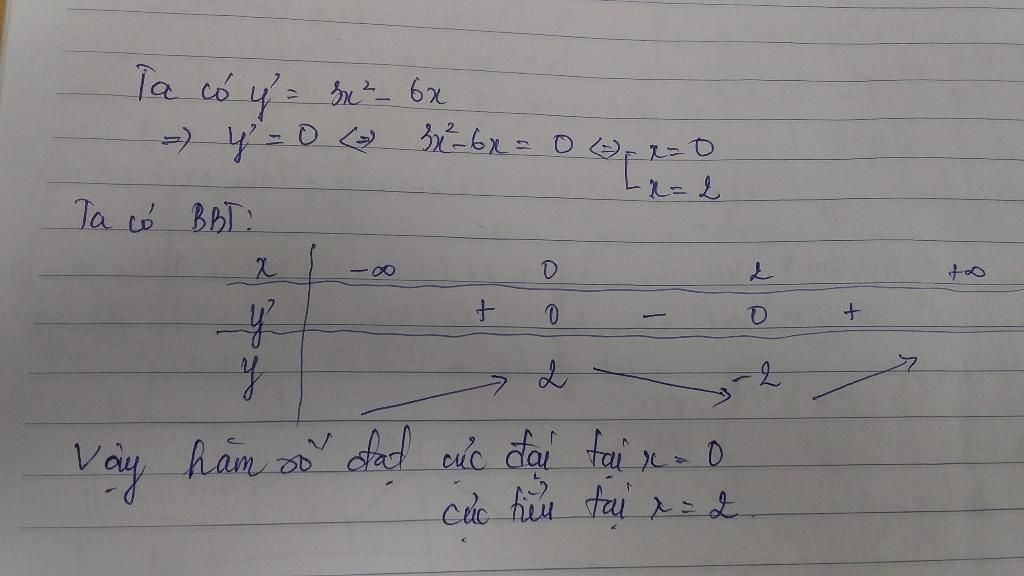 Ta có y' = 3x² - 6x
=> y' = 0 <=> 3x² - 6x = 0 <=> [ x = 0
x = 2
Ta có BBT:
x -∞ 0 2 +∞
y' + 0 - 0 +
y 2 -2
Vậy hàm số đạt cực đại tại x = 0
cực tiểu tại x = 2.